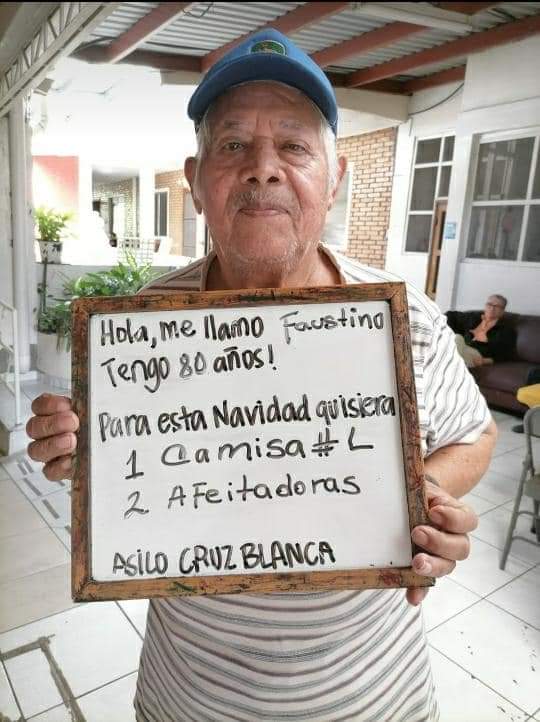 Hola, me llamo Faustino
Tengo 80 años!
Para esta Navidad quisiera
1 Camisa # L
2 AFeitadoras
ASILO CRUZ BLANCA